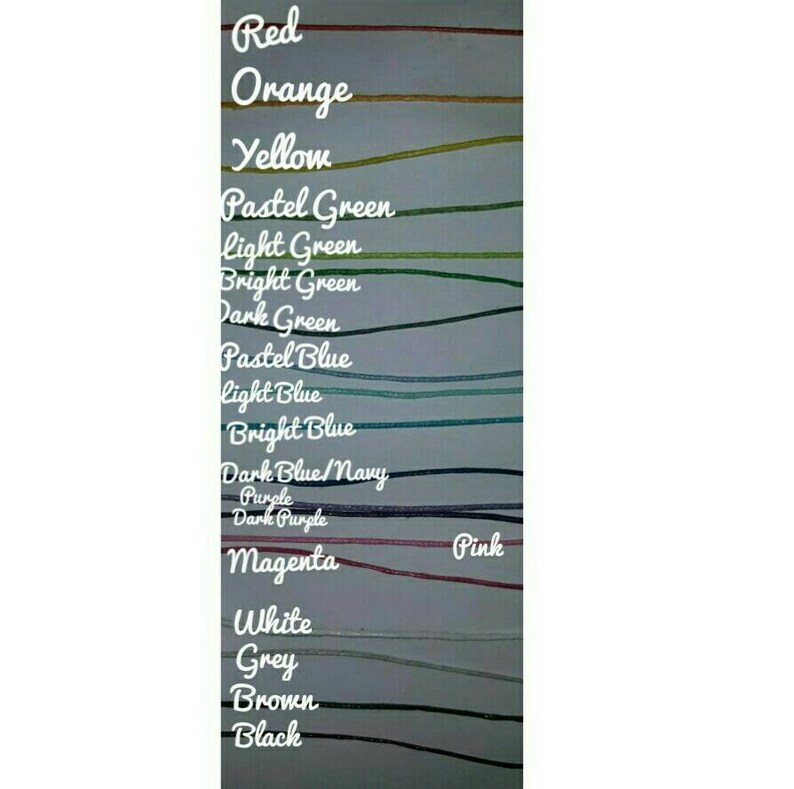 Red
Orange
Yellow
Pastel Green
Light Green
Bright Green
Dark Green
Pastel Blue
Light Blue
Bright Blue
Dark Blue/Navy
Purple
Dark Purple
Pink
Magenta
White
Grey
Brown
Black